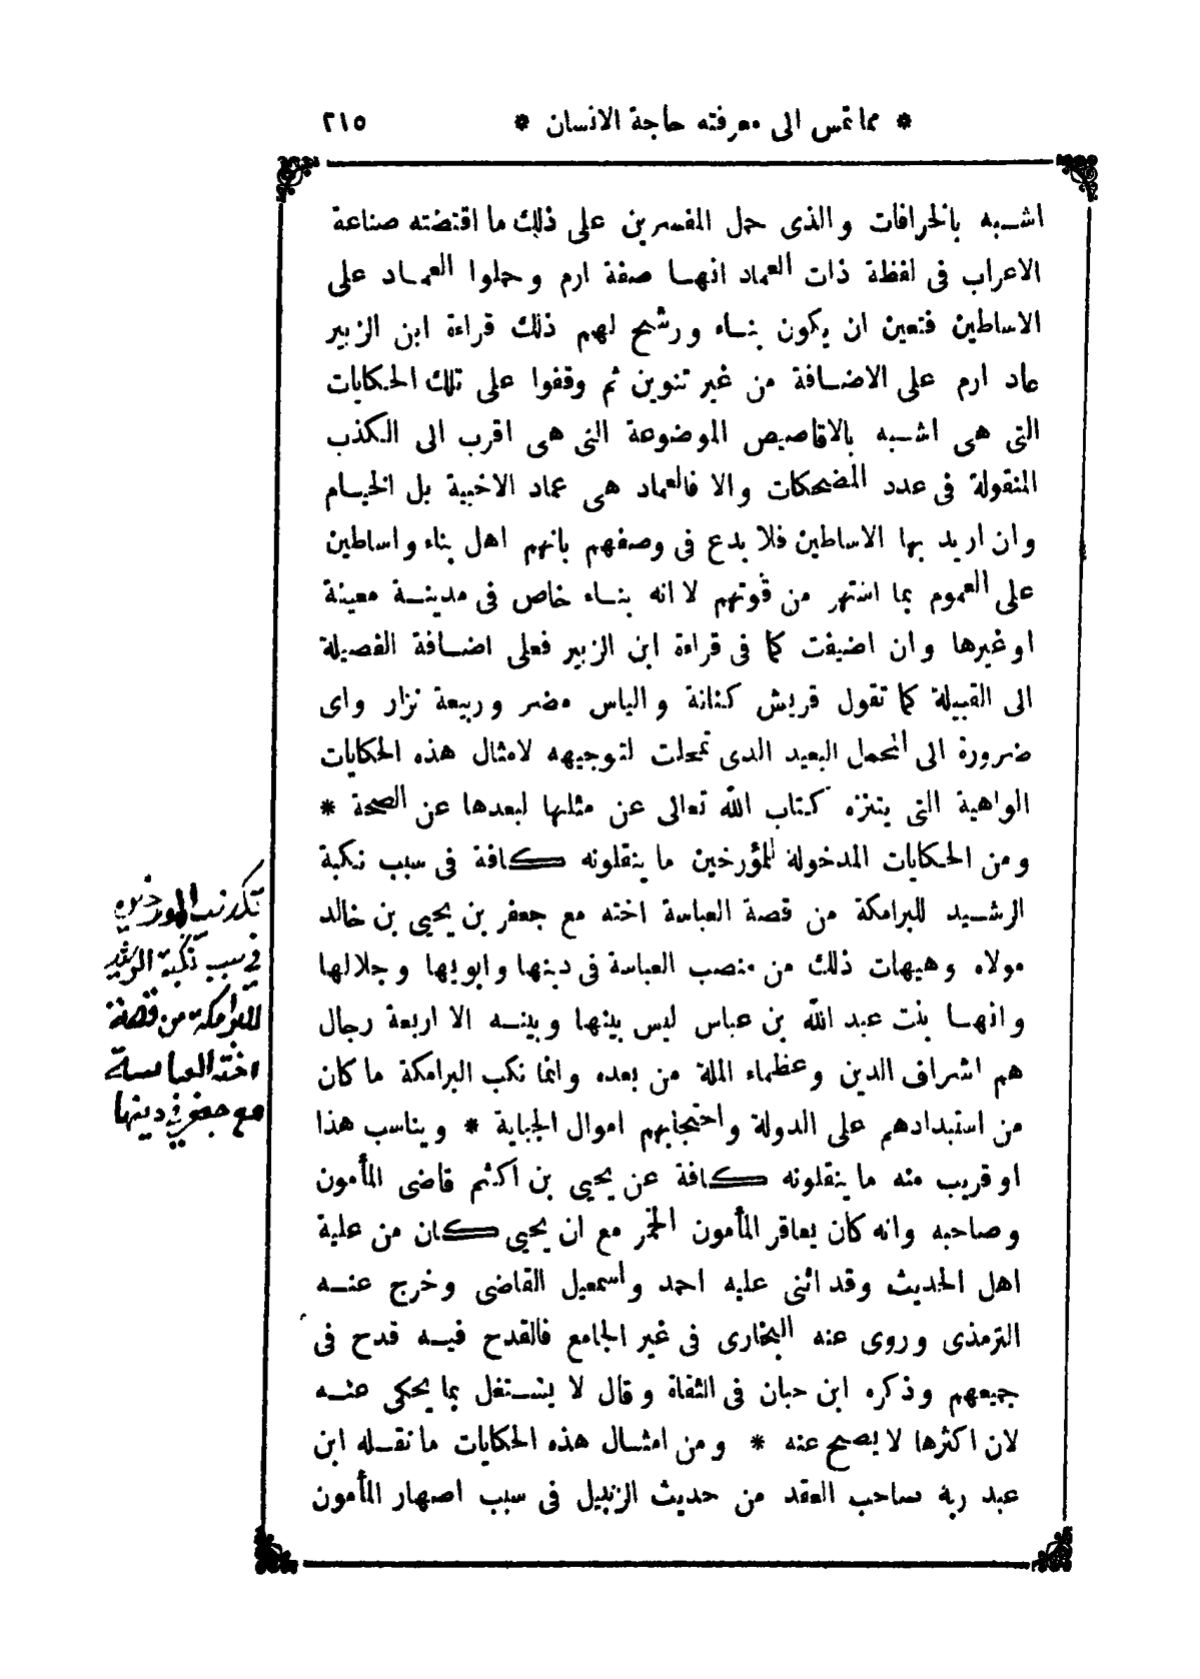 * مما تمس الى معرفته حاجة الانسان * ٢١٥
اشبه بالخرافات والذى حمل المفسرين على ذلك ما اقتضته صناعة
الاعراب فى لفظة ذات العماد انها صفة ارم وحملوا العماد على
الاساطين فتعين ان يكون بناء ورشح لهم ذلك قراءة ابن الزبير
عاد ارم على الاضافة من غير تنوين ثم وقفوا على تلك الحكايات
التى هى اشبه بالاقاصيص الموضوعة التى هى اقرب الى الكذب
المنقولة فى عدد المضحكات والا فالعماد هى عماد الاخبية بل الخيام
وان اريد بها الاساطين فلا بدع فى وصفهم بانهم اهل بناء واساطين
على العموم بما اشتهر من قوتهم لا انه بناء خاص فى مدينة معينة
او غيرها وان اضيفت كما فى قراءة ابن الزبير فعلى اضافة الفصيلة
الى القبيلة كما تقول قريش كنانة والياس مضر وربيعة نزار واى
ضرورة الى المحمل البعيد الذى تمحلت لتوجيهه لامثال هذه الحكايات
الواهية التى يتنزه كتاب الله تعالى عن مثلها لبعدها عن الصحة *
ومن الحكايات المدخولة للمؤرخين ما ينقلونه كافة فى سبب نكبة
الرشيد للبرامكة من قصة العباسة اخته مع جعفر بن يحيى بن خالد
مولاه وهيهات ذلك من منصب العباسة فى دينها وابويها وجلالها
وانها بنت عبد الله بن عباس ليس بينها وبينه الا اربعة رجال
هم اشراف الدين وعظماء الملة من بعده وانما نكب البرامكة ما كان
من استبدادهم على الدولة واحتجابهم اموال الجباية * ويناسب هذا
او قريب منه ما ينقلونه كافة عن يحيى بن اكثم قاضى المأمون
وصاحبه وانه كان يعاقر المأمون الخمر مع ان يحيى كان من علية
اهل الحديث وقد اثنى عليه احمد واسمعيل القاضى وخرج عنه
الترمذى وروى عنه البخارى فى غير الجامع فالقدح فيه قدح فى
جميعهم وذكره ابن حبان فى الثقاة وقال لا يشتغل بما يحكى عنه
لان اكثرها لا يصح عنه * ومن امثال هذه الحكايات ما نقله ابن
عبد ربه صاحب العقد من حديث الزنبيل فى سبب اصهار المأمون
المورخين
فى سبب نكبة الرشيد
للبرامكة من قصة
اخته العباسة
مع جعفر فى دينها